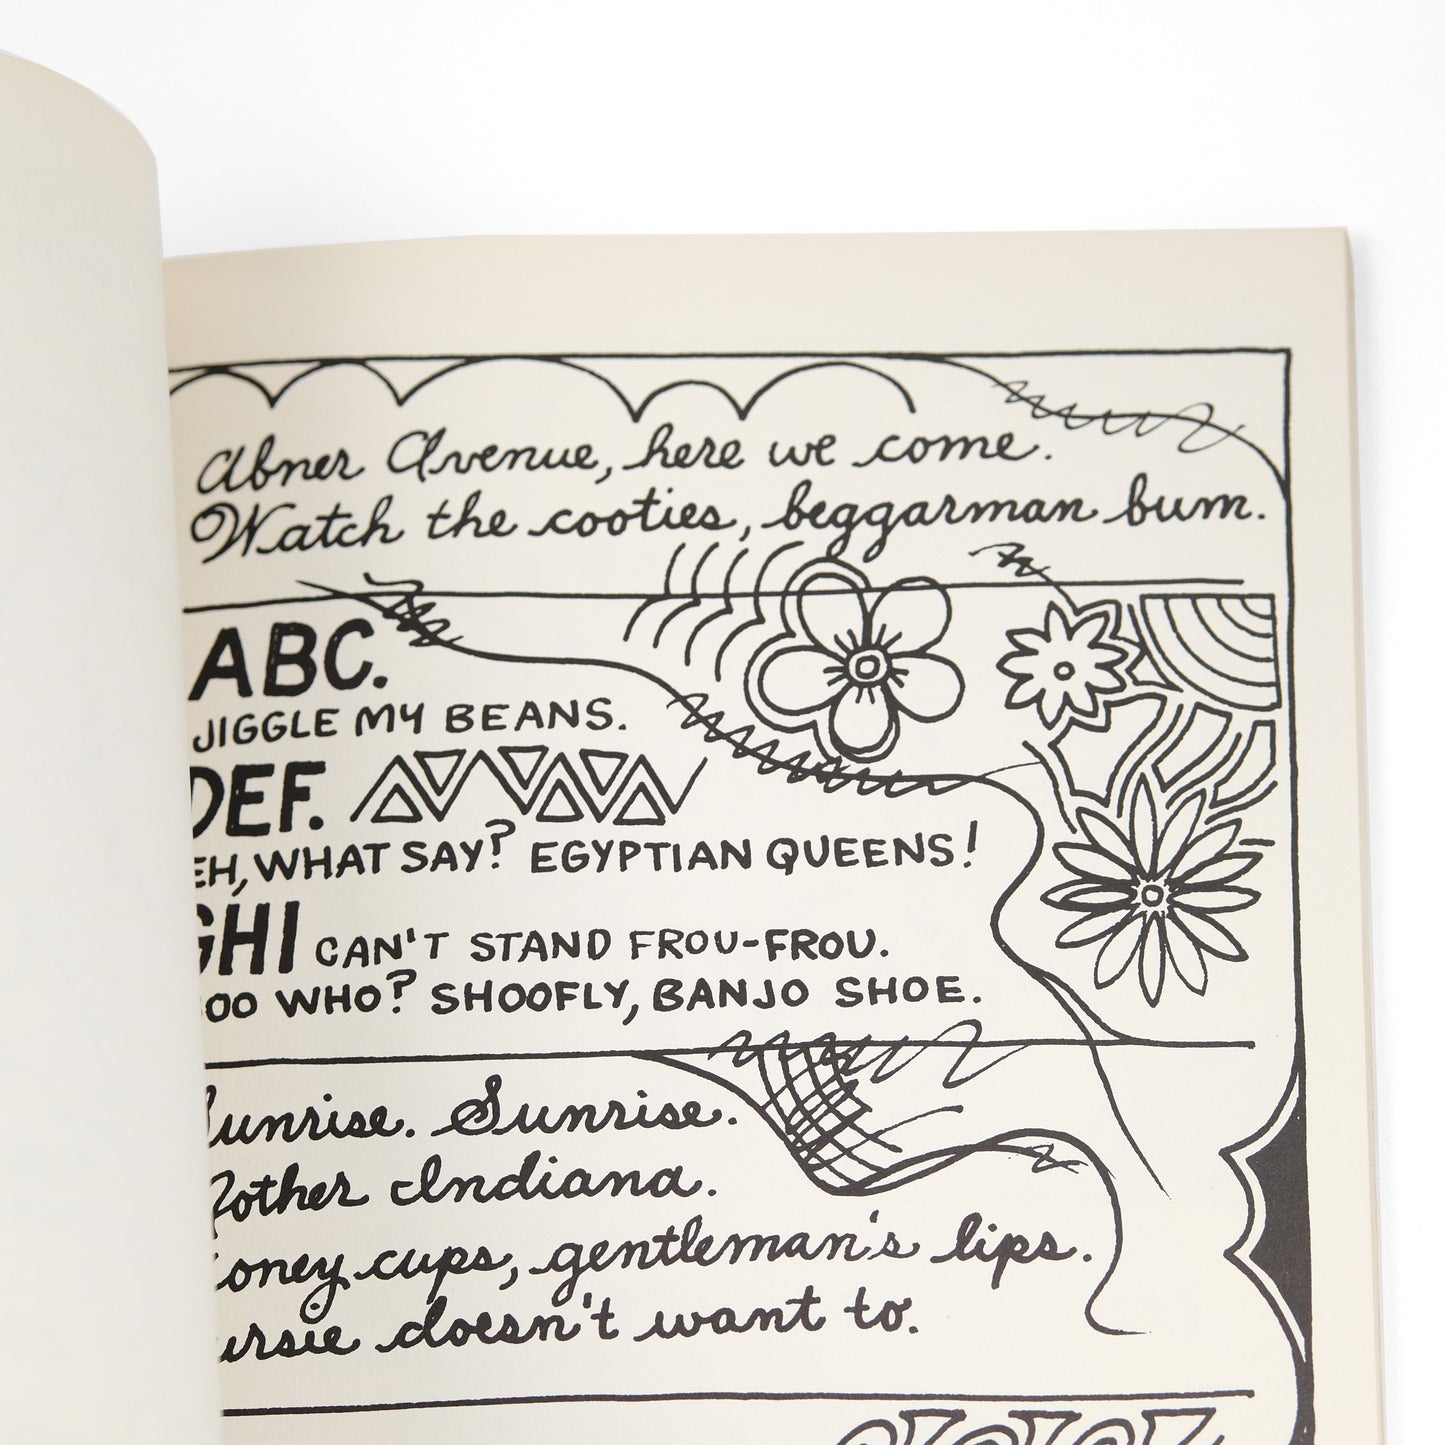 Abner Avenue, here we come.
Watch the cooties, beggarman bum.
ABC.
JIGGLE MY BEANS.
DEF.
EH, WHAT SAY? EGYPTIAN QUEENS!
GHI CAN'T STAND FROU-FROU.
WHO? SHOOFLY, BANJO SHOE.
Sunrise. Sunrise.
Indiana.
cups, gentleman's lips.
doesn't want to.